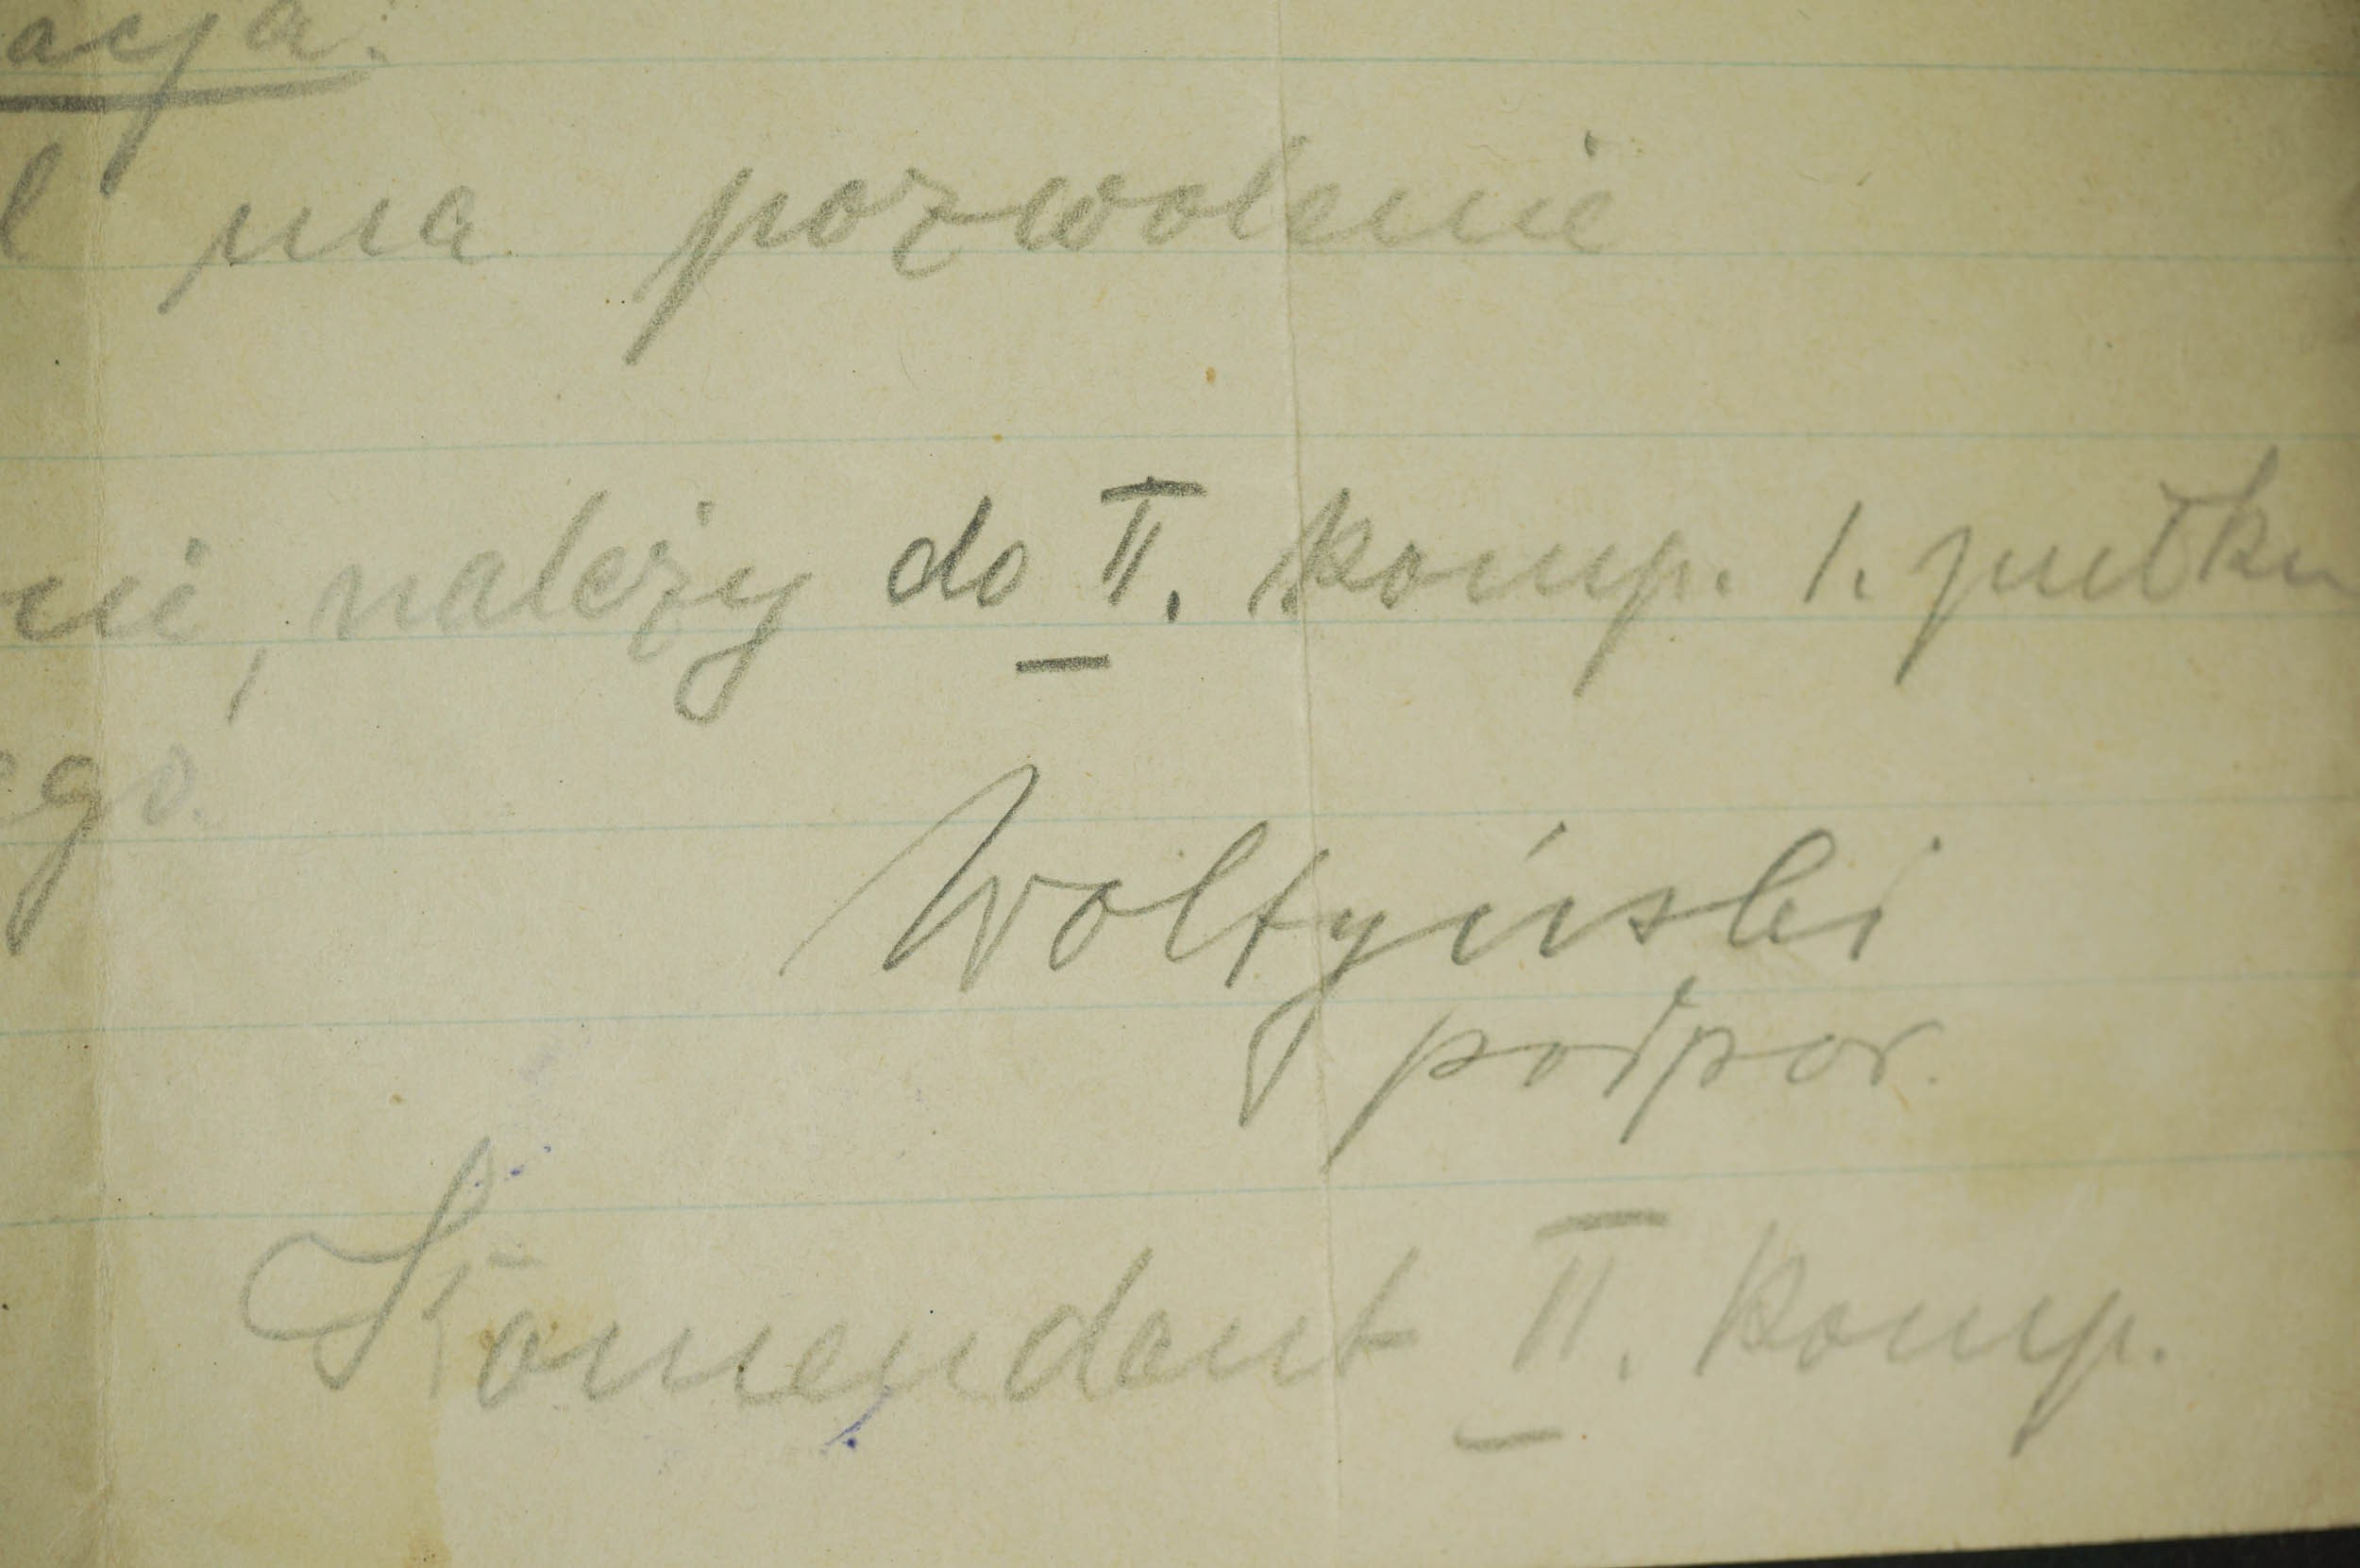 acja.
l ma pozwolenie
ni, należy do II. komp. 1. pułku
ego.
Wołyński
podpor.
Komendant II. komp.